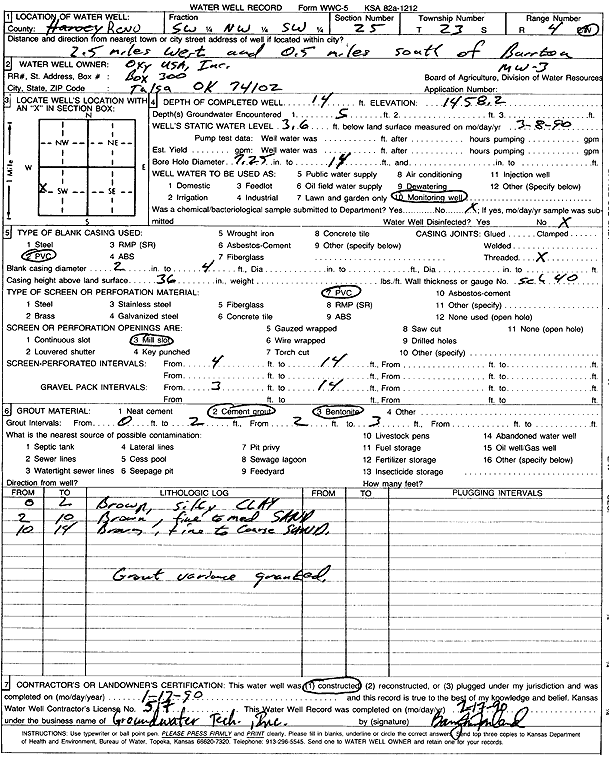 WATER WELL RECORD Form WWC-5 KSA 82a-1212
1 LOCATION OF WATER WELL: Fraction Section Number Township Number Range Number
County: Harvey Reno SW ¼ NW ¼ SW ¼ 25 T 23 S R 4 W
Distance and direction from nearest town or city street address of well if located within city?
2.5 miles west and 0.5 miles south of Burrton
2 WATER WELL OWNER: Oxy USA, Inc. MW-3
RR#, St. Address, Box # : Box 300 Board of Agriculture, Division of Water Resources
City, State, ZIP Code : Tulsa OK 74102 Application Number:
3 LOCATE WELL'S LOCATION WITH AN "X" IN SECTION BOX:
N
NW NE
W E
X SW SE
S
1 Mile
4 DEPTH OF COMPLETED WELL 14 ft. ELEVATION: 1458.2
Depth(s) Groundwater Encountered 1. 5 ft. 2. ft. 3. ft.
WELL'S STATIC WATER LEVEL 3.6 ft. below land surface measured on mo/day/yr 3-8-90
Pump test data: Well water was ft. after hours pumping gpm
Est. Yield gpm: Well water was ft. after hours pumping gpm
Bore Hole Diameter 7.25 in. to 14 ft., and in. to ft.
WELL WATER TO BE USED AS: 5 Public water supply 8 Air conditioning 11 Injection well
1 Domestic 3 Feedlot 6 Oil field water supply 9 Dewatering 12 Other (Specify below)
2 Irrigation 4 Industrial 7 Lawn and garden only 10 Monitoring well
Was a chemical/bacteriological sample submitted to Department? Yes No X; If yes, mo/day/yr sample was sub-
mitted Water Well Disinfected? Yes No X
5 TYPE OF BLANK CASING USED: 5 Wrought iron 8 Concrete tile CASING JOINTS: Glued Clamped
1 Steel 3 RMP (SR) 6 Asbestos-Cement 9 Other (specify below) Welded
2 PVC 4 ABS 7 Fiberglass Threaded X
Blank casing diameter 2 in. to 4 ft., Dia in. to ft., Dia in. to ft.
Casing height above land surface 36 in., weight lbs./ft. Wall thickness or gauge No. Sch 40
TYPE OF SCREEN OR PERFORATION MATERIAL: 7 PVC 10 Asbestos-cement
1 Steel 3 Stainless steel 5 Fiberglass 8 RMP (SR) 11 Other (specify)
2 Brass 4 Galvanized steel 6 Concrete tile 9 ABS 12 None used (open hole)
SCREEN OR PERFORATION OPENINGS ARE: 5 Gauzed wrapped 8 Saw cut 11 None (open hole)
1 Continuous slot 3 Mill slot 6 Wire wrapped 9 Drilled holes
2 Louvered shutter 4 Key punched 7 Torch cut 10 Other (specify)
SCREEN-PERFORATED INTERVALS: From 4 ft. to 14 ft., From ft. to ft.
From ft. to ft., From ft. to ft.
GRAVEL PACK INTERVALS: From 3 ft. to 14 ft., From ft. to ft.
From ft. to ft., From ft. to ft.
6 GROUT MATERIAL: 1 Neat cement 2 Cement grout 3 Bentonite 4 Other
Grout Intervals: From 0 ft. to 2 ft., From 2 ft. to 3 ft., From ft. to ft.
What is the nearest source of possible contamination: 10 Livestock pens 14 Abandoned water well
1 Septic tank 4 Lateral lines 7 Pit privy 11 Fuel storage 15 Oil well/Gas well
2 Sewer lines 5 Cess pool 8 Sewage lagoon 12 Fertilizer storage 16 Other (specify below)
3 Watertight sewer lines 6 Seepage pit 9 Feedyard 13 Insecticide storage
Direction from well? How many feet?
FROM TO LITHOLOGIC LOG FROM TO PLUGGING INTERVALS
0 2 Brown, silty CLAY
2 10 Brown, fine to med SAND
10 14 Brown, fine to Coarse SAND.
Grout variance granted.
7 CONTRACTOR'S OR LANDOWNER'S CERTIFICATION: This water well was (1) constructed, (2) reconstructed, or (3) plugged under my jurisdiction and was
completed on (mo/day/year) 1-17-90 and this record is true to the best of my knowledge and belief. Kansas
Water Well Contractor's License No. 517 This Water Well Record was completed on (mo/day/yr) 2-17-90
under the business name of Groundwater Tech. Inc. by (signature)
INSTRUCTIONS: Use typewriter or ball point pen. PLEASE PRESS FIRMLY and PRINT clearly. Please fill in blanks, underline or circle the correct answers. Send top three copies to Kansas Department
of Health and Environment, Bureau of Water, Topeka, Kansas 66620-7320. Telephone: 913-296-5545. Send one to WATER WELL OWNER and retain one for your records.